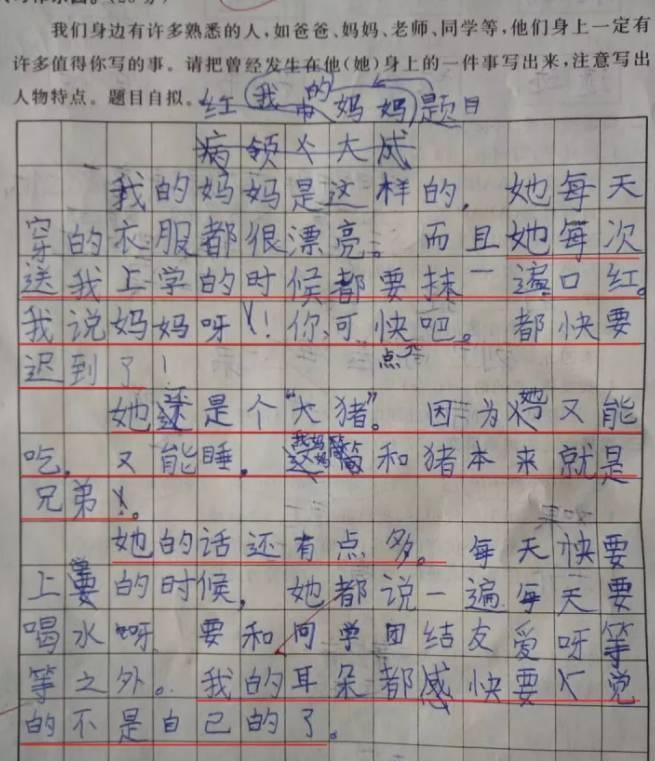 我们身边有许多熟悉的人,如爸爸、妈妈、老师、同学等,他们身上一定有
许多值得你写的事。请把曾经发生在他(她)身上的一件事写出来,注意写出
人物特点。题目自拟。红 我的妈妈 题目
病领火大成
我的妈妈是这样的,她每天
穿的衣服都很漂亮。而且她每次
送我上学的时候都要抹一遍口红。
我说妈妈呀!你可快点吧。都快要
迟到了!
她还是个“大猪”。因为她又能
吃,又能睡,我妈妈简简和猪本来就是
兄弟。
她的话还有点多。每天快要
上学的时候,她都说一遍每天要
喝水呀 要和同学团结友爱呀等
等之外。我的耳朵都感快要觉
的不是自己的了。